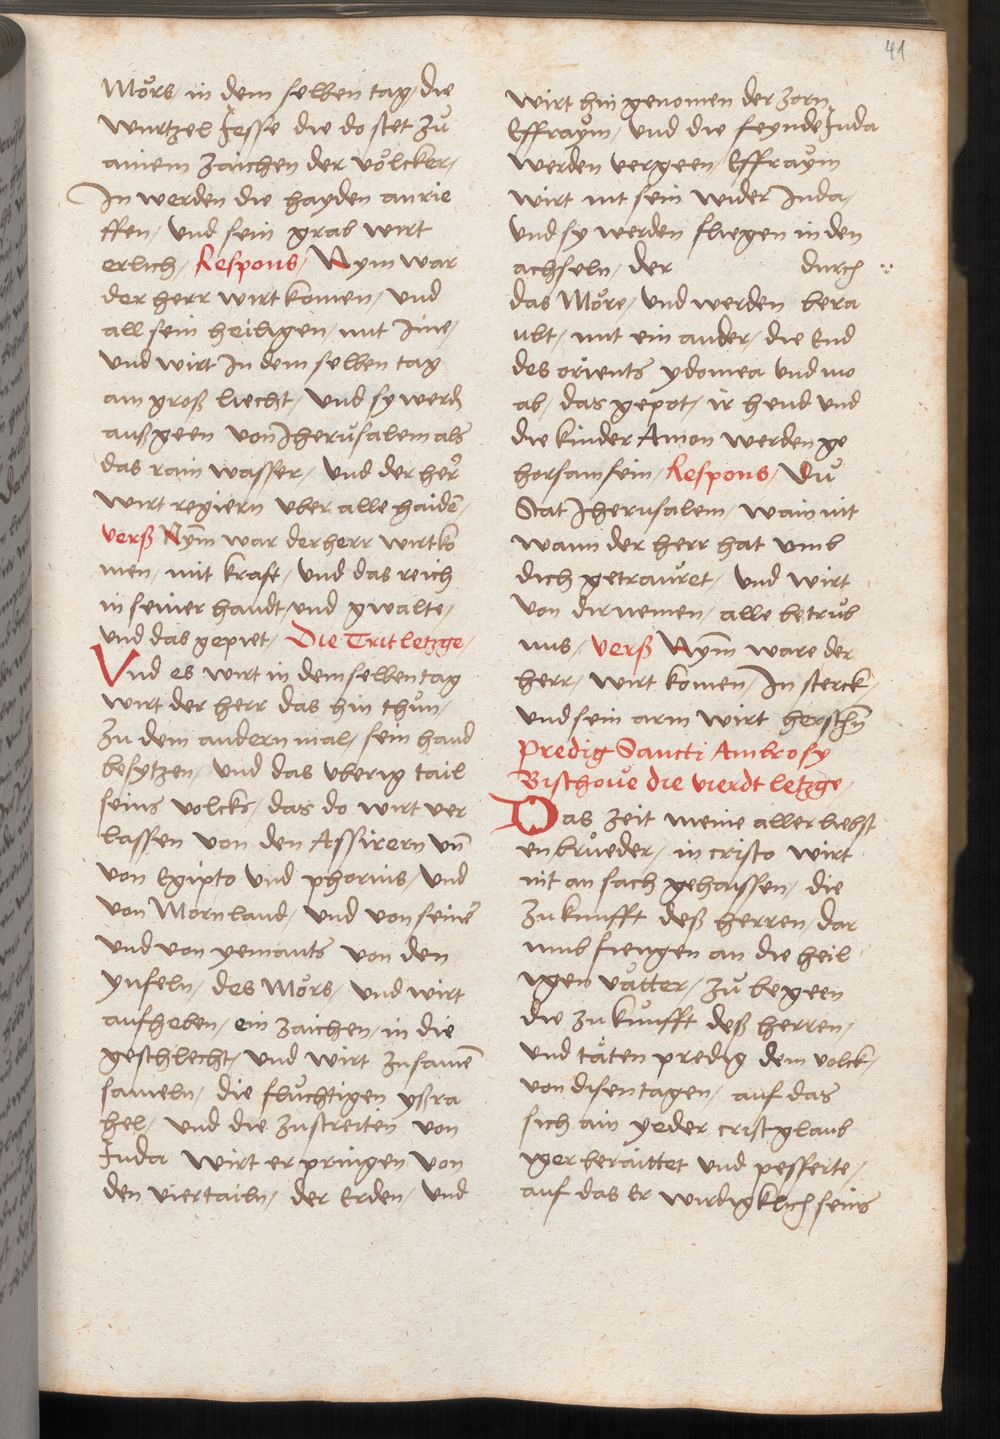 41
Mörs / in dem selben tag / die
wurtzel Jesse die do stet zů
ainem zaichen der völcker /
In werden die hayden anrie
ffen / vnd sein grab wirt
erlich / Respons / Nym war
der herr wirt komen / vnd
all sein heiligen / mit Ime /
vnd wirt In dem selben tag
ain groß liecht / vnd sy werdn
außgeen von Jherusalem als
das rain wasser / vnd der her
wirt regiern vber alle haiden /
verß Nym̄ war der herr wirt ko
men / mit kraft / vnd das reich
in seiner handt / vnd gwalte /
vnd das gepiet / Die Trit letzge /
Vnd es wirt in dem selben tag
wirt der herr das hin thůn /
zu dem andern mal / sein hand
besytzen / vnd das vberig tail
seins volcks / das do wirt ver
lassen von den Assirern vn̄
von Egipto vnd phorius / vnd
von Mornland / vnd von seine͂
vnd von yemants von den
ynseln / des Mörs / vnd wirt
aufheben / ein zaichen / in die
geschlecht / vnd wirt zusame͂
sameln / die fluchtigen yßra
hel / vnd die zustreiten von
Juda wirt er pringen von
den viertailn / der Erden / vnd
wirt hin genomen der zorn
Effraym / vnd die feynde Juda
werden vergeen / Effraym
wirt nit sein wider Juda /
vnd sy werden fliegen in den
achseln / der durch
das Möre / vnd werden bera
ubt / mit ein ander / die End
des orients ydomea vnd mo
ab / das gepot / ir hend vnd
die kinder Amon werden ge
horsam sein / Respons / Dů
Stat Jherusalem / wain nit
wann der herr hat vmb
dich getrauret / vnd wirt
von dir nemen / alle betrůb
nus / verß Nym̄ ware der
herr / wirt komen / In sterck /
vnd sein arm wirt herschn̄
Predig Sancti Ambrosy
Bischoue die vierdt letzge /
Das zeit meine aller liebst
en brůeder / in cristo wirt
nit an sach gehaissen / die
zukunfft deß herren / dar
umb fiengen an die heil
igen vätter / zů begeen
die zukunfft deß herren /
vnd täten predig dem volck /
von disen tagen / auf das
sich ain yeder cristglaub
iger beraittet vnd pesserte /
auf das Er wirdigklich seins